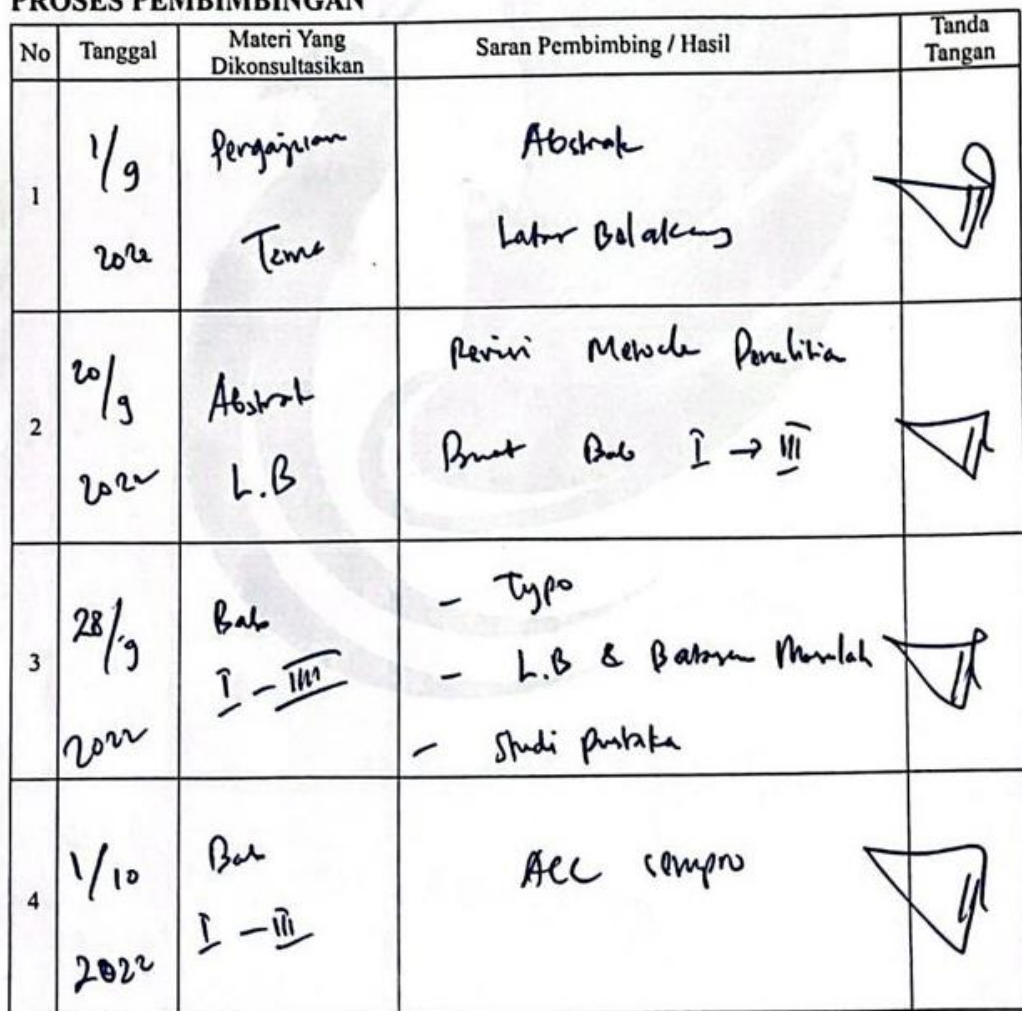 PROSES PEMBIMBINGAN
No Tanggal Materi Yang Dikonsultasikan Saran Pembimbing / Hasil Tanda Tangan
1
1/9
2022
Pengajuan
Tema
Abstrak
Latar Belakang
2
20/9
2022
Abstrak
L.B
Revisi Metode Penelitia
Buat Bab I → III
3
28/9
2022
Bab
I - III
- Typo
- L.B & Batasan Masalah
- Studi pustaka
4
1/10
2022
Bab
I - III
ACC sempro